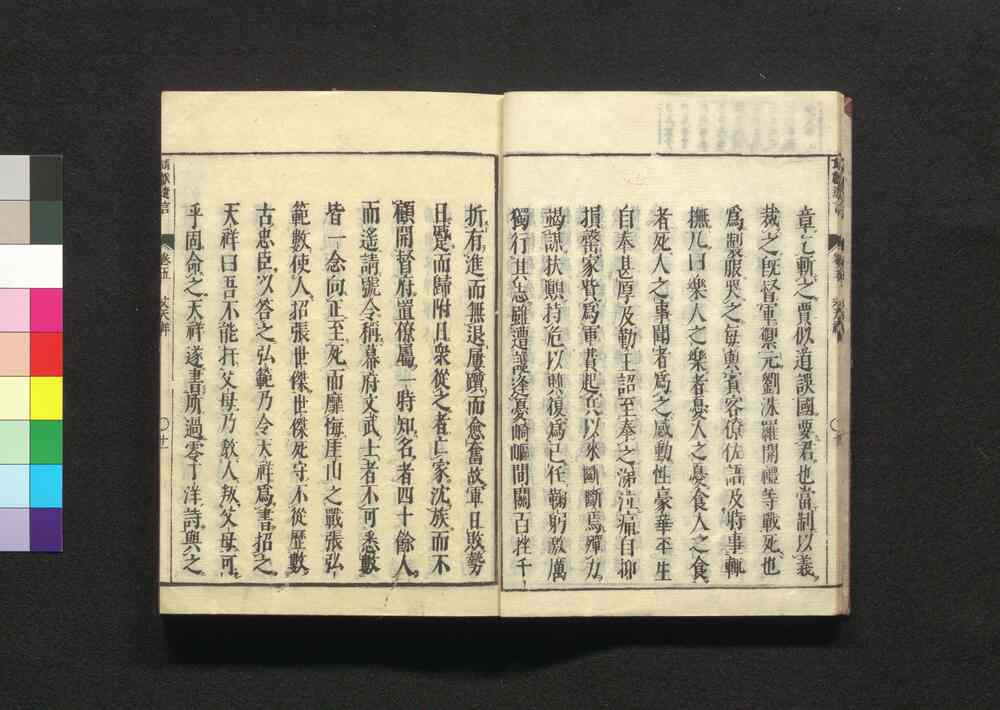 章乞斬之賈似道誤國要君也當制以義
裁之旣督軍禦元劉洙羅開禮等戰死也
爲製服哭之每與賓客僚佐語及時事輒
撫几曰樂人之樂者憂人之憂食人之食
者死人之事聞者爲之感動性豪華平生
自奉甚厚及勤王詔至奉之涕泣痛自抑
損罄家貲爲軍費起兵以來斷斷焉殫力
竭謀扶顚持危以興復爲己任鞠躬激厲
獨行其志雖遭讒逢憂崎嶇間關百挫千
折有進而無退屢躓而愈奮故軍日敗勢
日蹙而歸附日衆從之者亡家沈族而不
顧開督府置僚屬一時知名者四十餘人
而遙請號令稱幕府文武士者不可悉數
皆一念向正至死而靡悔崖山之戰張弘
範數使人招張世傑世傑死守不從歷數
古忠臣以答之弘範乃令天祥爲書招之
天祥曰吾不能扞父母乃敎人叛父母可
乎固命之天祥遂書所過零丁洋詩與之
靖獻遺言 卷五 文天祥 〇十一